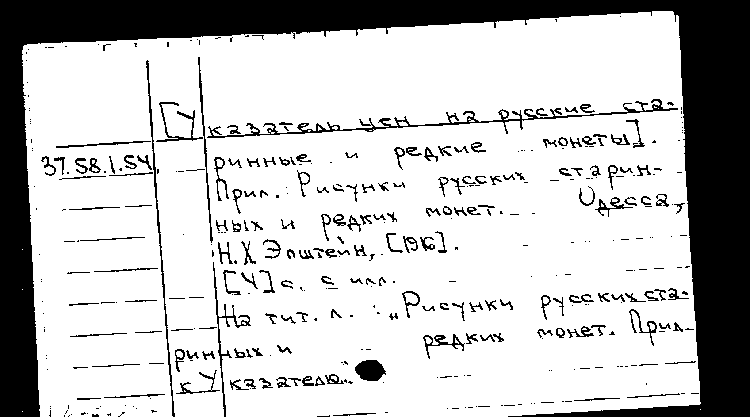 [Указатель цен на русские ста-
37.58.1.54. ринные и редкие монеты].
Прил.: Рисунки русских старин-
ных и редких монет. Одесса,
Н.Х. Эпштейн, [1916].
[4] с. с илл.
На тит. л.: „Рисунки русских ста-
ринных и редких монет. Прил.
к Указателю..."